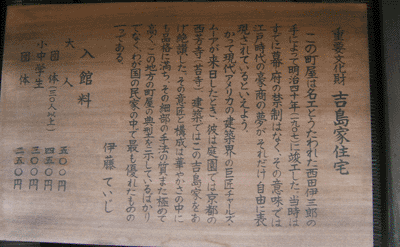 重要文化財 吉島家住宅
この町屋は名工とうたわれた西田伊三郎の
手によって明治四十年(一九〇七)に竣工した。当時は
すでに幕府の禁制はなく、その意味では
江戸時代の豪商の夢がそれだけ自由に表
現されているといえよう。
かつて現代アメリカの建築界の巨匠チャールズ・
ムーアが来日したとき、彼は庭園では京都の
西芳寺(苔寺)、建築ではこの吉島家をあ
げ絶讃した。その意匠と構成は華やかさの中に
も品格に満ち、その細部の手法の質また極めて
高く、この地方の町屋の典型を示しているばかり
でなく、わが国の民家の中で最も優れたものの
一つである。
伊藤ていじ
入館料
大人 五〇〇円
団体(三〇人以上) 四五〇円
小中学生 三〇〇円
団体 二五〇円